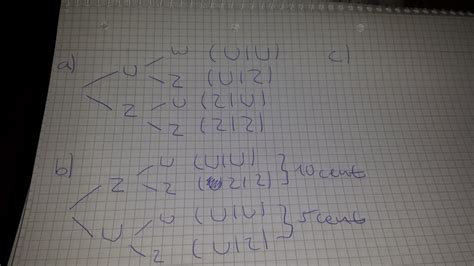 a) U W (U|U) c)
Z (U|Z)
Z U (Z|U)
Z (Z|Z)
b) Z U (U|U) } 10 cent
Z (Z|Z)
U U (U|U) } 5 cent
Z (U|Z)